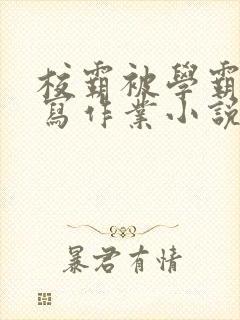 校霸被學霸
寫作業小説
暴君有情